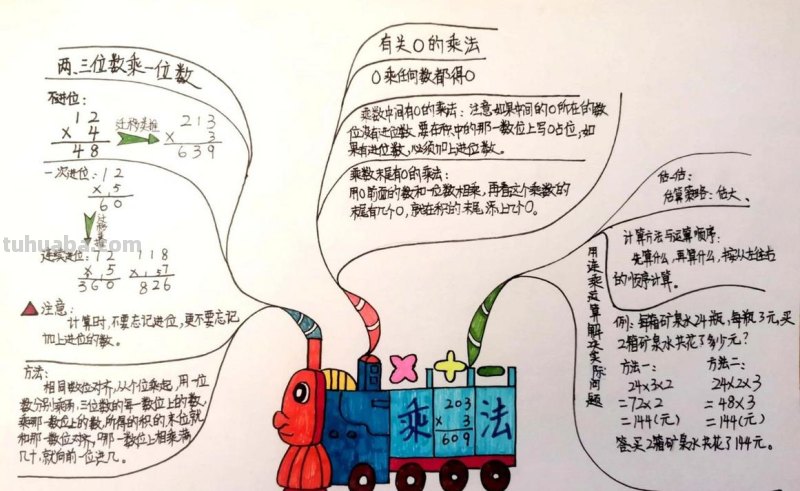 两、三位数乘一位数
不进位：
12
× 4
48
迁移类推
213
× 3
639
一次进位：12
× 5
60
迁移类推
连续进位：
118
826
注意：
计算时，不要忘记进位，更不要忘记
加上进位的数。
方法：
相同数位对齐，从个位乘起，用一位
数分别乘两、三位数的每一数位上的数，
乘哪一数位上的数，所得的积的末位就
和那一数位对齐，哪一数位上相乘满
几十，就向前一位进几。
有关0的乘法
0乘任何数都得0
乘数中间有0的乘法：注意如果中间的0所在的数
位没有进位数，要在积中的那一数位上写0占位，如
果有进位数，必须加上进位数。
乘数末尾有0的乘法：
用0前面的数和一位数相乘，再看这个乘数的
末尾有几个0，就在积的末尾添上几个0。
用连乘或乘解决实际问题
估一估：
估算策略：估大、
计算方法与运算顺序：
先算什么，再算什么，按从左往右
的顺序计算。
例：每箱矿泉水24瓶，每瓶3元，买
2箱矿泉水共花了多少元？
方法一： 方法二：
24×3×2 24×2×3
=72×2 =48×3
=144（元） =144（元）
答：买2箱矿泉水共花了144元。
× + −
乘
203
× 3
609
法
tuhuaba.com